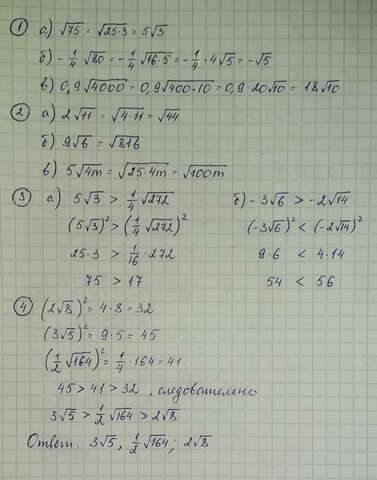 ① а) √75 = √25·3 = 5√3
б) -1/4 √80 = -1/4 √16·5 = -1/4 · 4√5 = -√5
в) 0,9√4000 = 0,9√400·10 = 0,9·20√10 = 18√10
② а) 2√11 = √4·11 = √44
б) 9√6 = √816
в) 5√4m = √25·4m = √100m
③ а) 5√3 > 1/4 √272
(5√3)² > (1/4 √272)²
25·3 > 1/16 · 272
75 > 17
б) -3√6 > -2√14
(-3√6)² < (-2√14)²
9·6 < 4·14
54 < 56
④ (2√8)² = 4·8 = 32
(3√5)² = 9·5 = 45
(1/2 √164)² = 1/4 · 164 = 41
45 > 41 > 32, следовательно
3√5 > 1/2 √164 > 2√8
Ответ: 3√5, 1/2 √164; 2√8